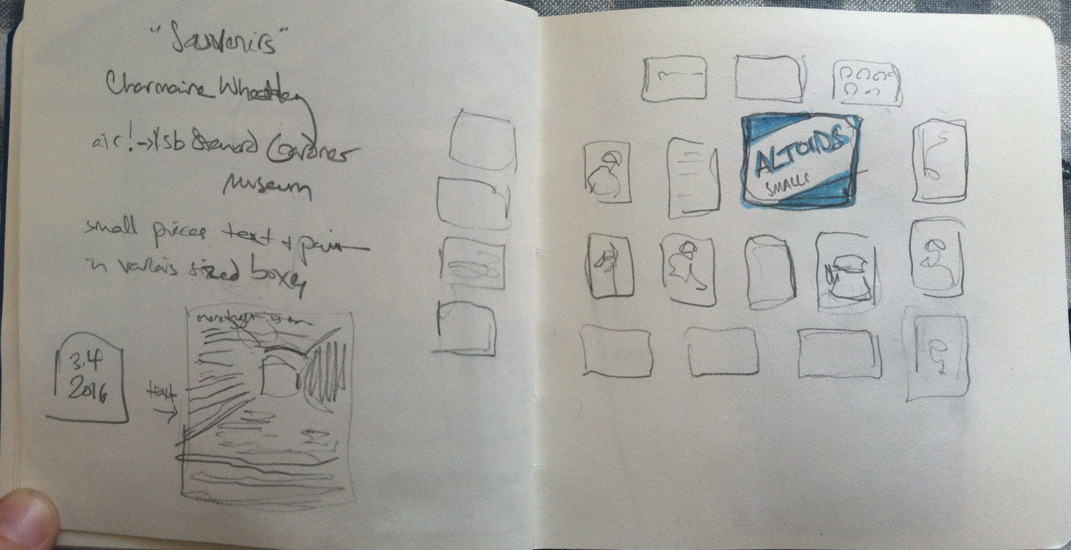 "Souvenirs"
Charmaine Wheatley
air!→ Isb Steward Gardner
Museum
small pieces text + pain
in varais sized boxes
3.4
2016
text
ALTOIDS
SMALLS